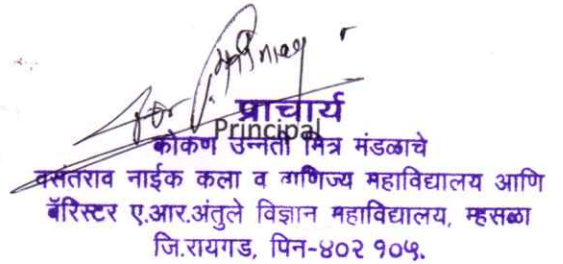 for
प्राचार्य
Principal
कोकण उन्नती मित्र मंडळाचे
वसंतराव नाईक कला व वाणिज्य महाविद्यालय आणि
बॅरिस्टर ए.आर.अंतुले विज्ञान महाविद्यालय, म्हसळा
जि.रायगड, पिन-४०२ १०५.